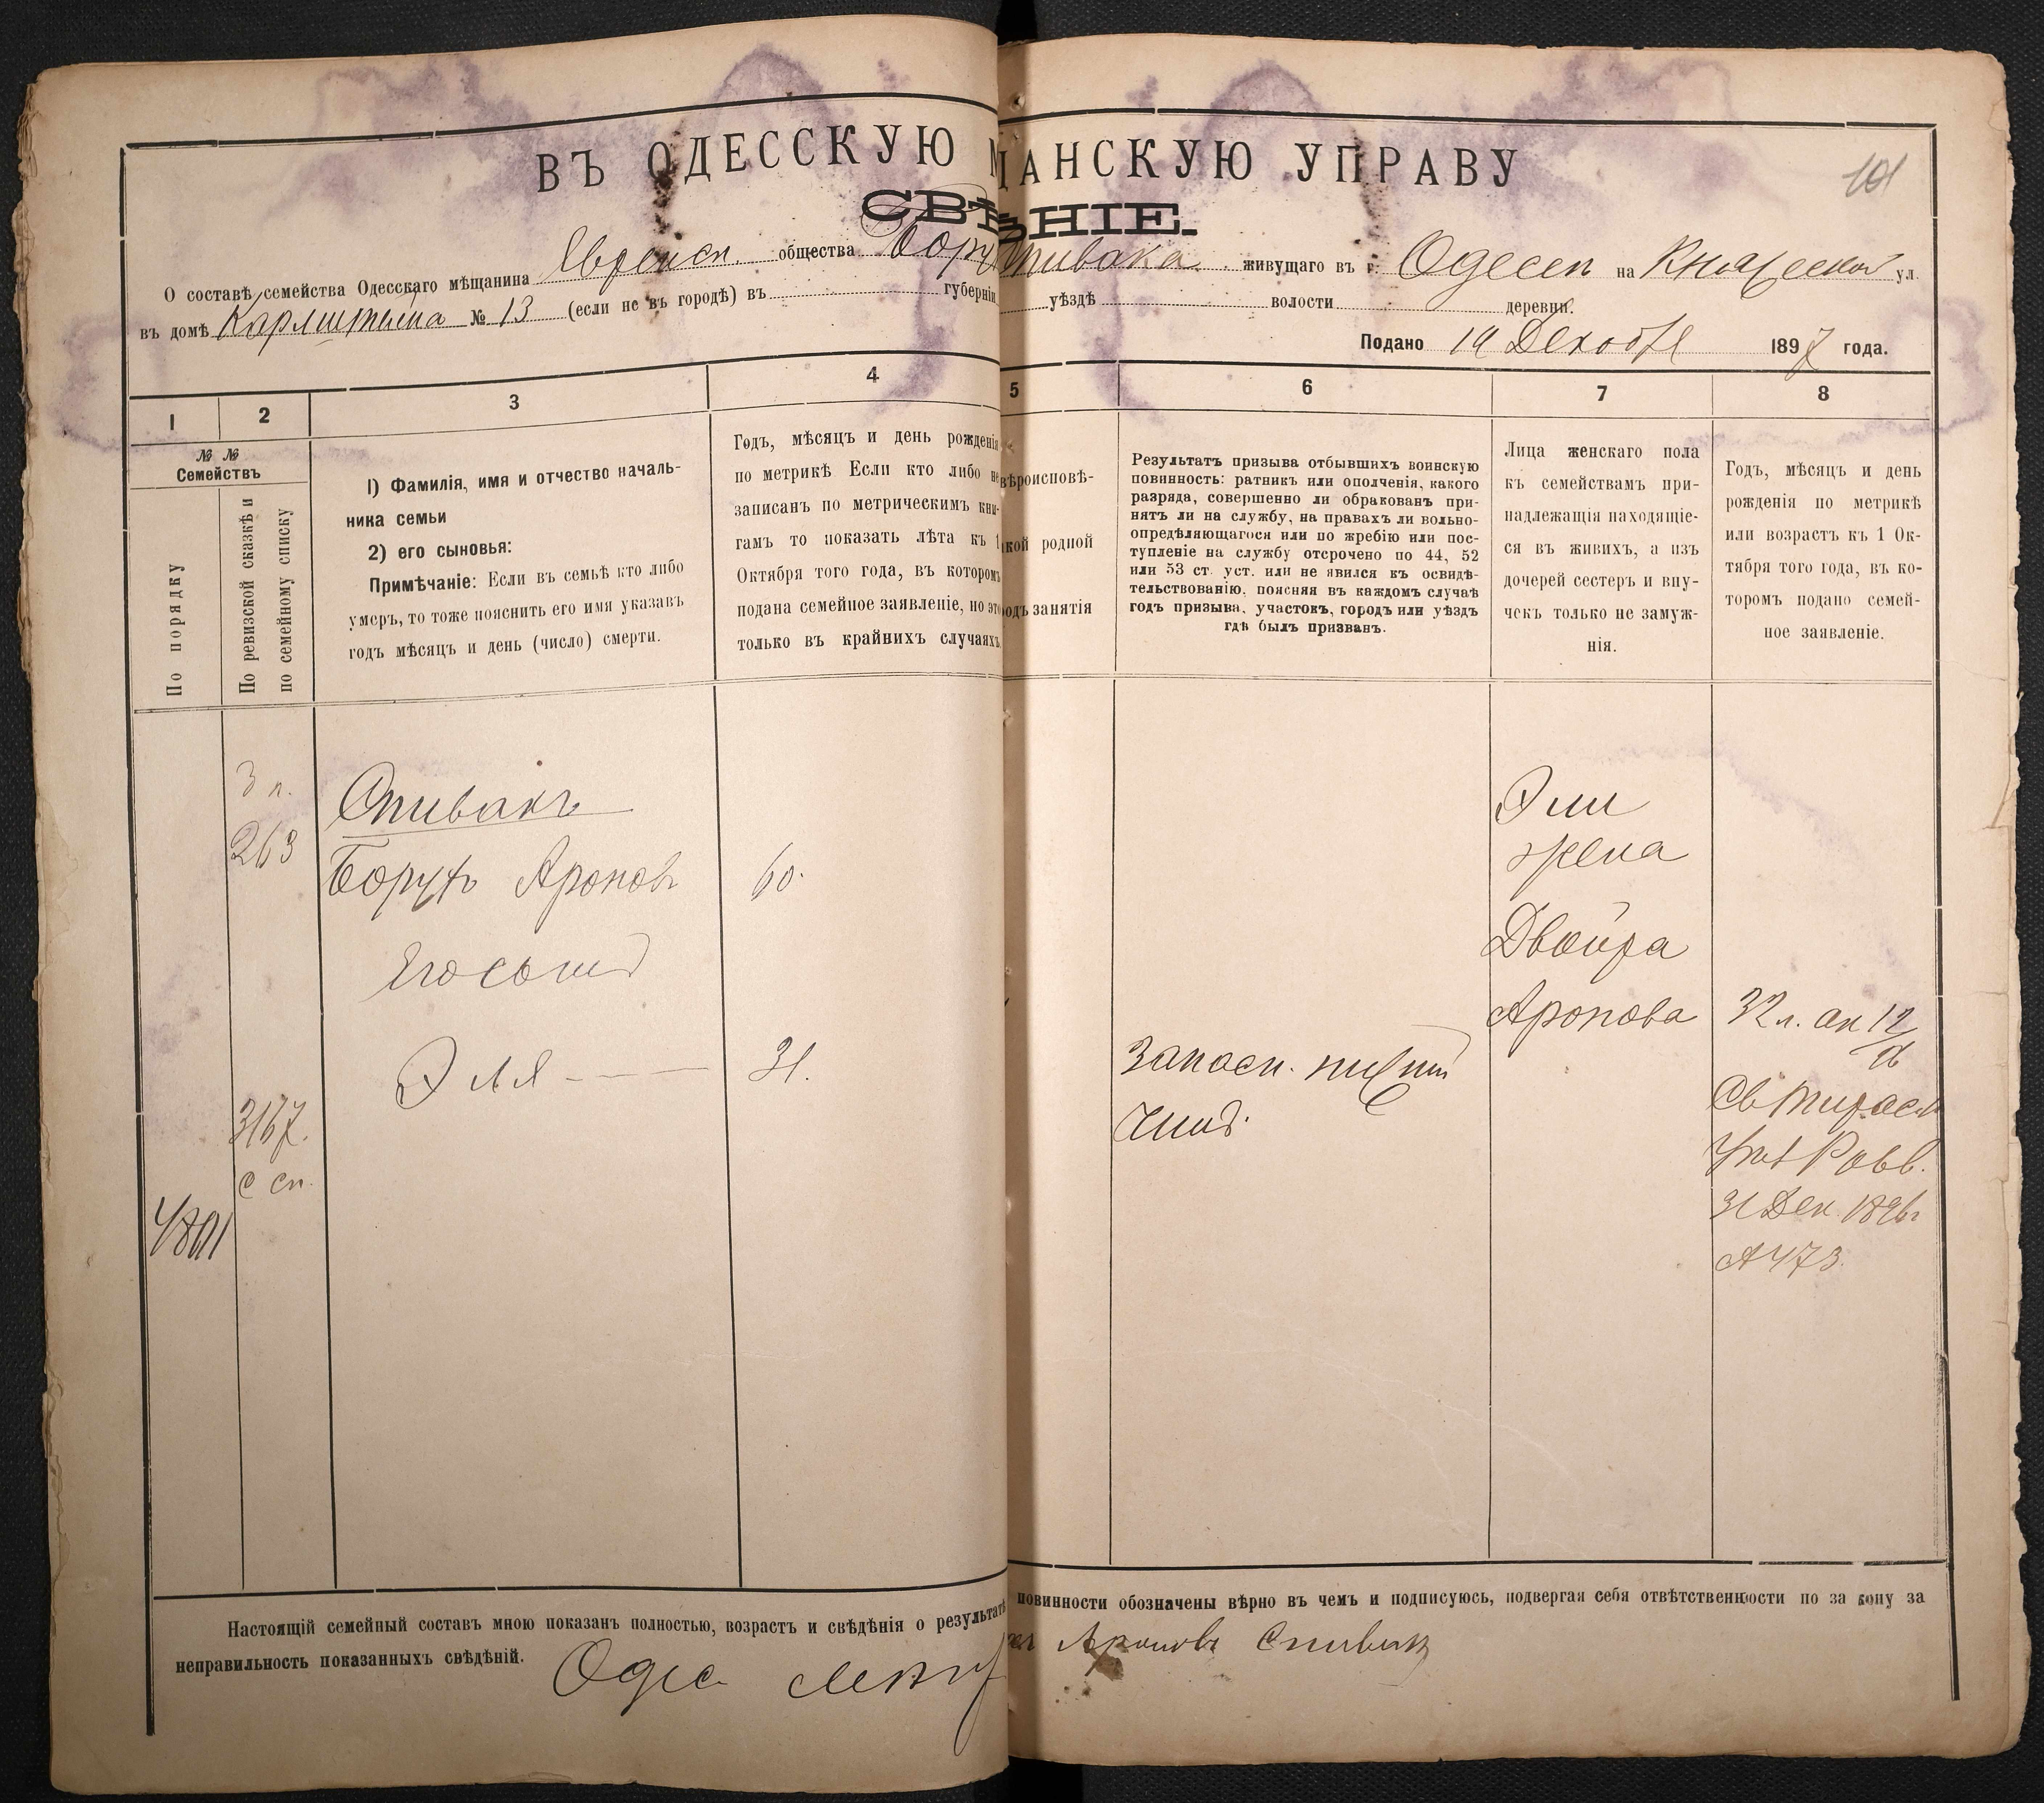 ВЪ ОДЕССКУЮ М ЩАНСКУЮ УПРАВУ
101
СВѢ ѢНІЕ.
О составѣ семейства Одесскаго мѣщанина Еврейск. общества Бору Спивака живущаго въ г. Одессѣ на Княжеской ул.
въ домѣ Карлштейна № 13 (если не въ городѣ) въ губерніи уѣздѣ волости деревни.
Подано 19 Декабря 1897 года.
1 2 3 4 5 6 7 8
№ №
Семействъ
По порядку
По ревизской сказкѣ и
по семейному списку
1) Фамилія, имя и отчество началь-
ника семьи
2) его сыновья:
Примѣчаніе: Если въ семьѣ кто либо
умеръ, то тоже пояснить его имя указавъ
годъ мѣсяцъ и день (число) смерти.
Годъ, мѣсяцъ и день рожденія
по метрикѣ Если кто либо не
записанъ по метрическимъ кни-
гамъ то показать лѣта къ 1
Октября того года, въ которомъ
подана семейное заявленіе, но это
только въ крайнихъ случаяхъ.
вѣроисповѣ-
кой родной
одъ занятія
Результатъ призыва отбывшихъ воинскую
повинность: ратникъ или ополченія, какого
разряда, совершенно ли обракованъ при-
нятъ ли на службу, на правахъ ли вольно-
опредѣляющагося или по жребію или пос-
тупленіе на службу отсрочено по 44, 52
или 53 ст. уст. или не явился къ освидѣ-
тельствованію, поясняя въ каждомъ случаѣ
годъ призыва, участокъ, городъ или уѣздъ
гдѣ былъ призванъ.
Лица женскаго пола
къ семействамъ при-
надлежащія находящіе-
ся въ живихъ, а изъ
дочерей сестеръ и вну-
чекъ только не замуж-
нія.
Годъ, мѣсяцъ и день
рожденія по метрикѣ
или возрастъ къ 1 Ок-
тября того года, въ ко-
торомъ подано семей-
ное заявленіе.
3 п.
263
Спивакъ
Борухъ Ароновъ 60.
Его сынъ
Эля 31.
3167.
с сп.
4801
Запасн. нижній
чинъ.
Эли
жена
Двойра
Аронова
32 л.
31 Дек. 1896 г
473
Настоящій семейный составъ мною показанъ полностью, возрастъ и свѣдѣнія о результатѣ повинности обозначены вѣрно въ чемъ и подписуюсь, подвергая себя отвѣтственности по за кону за
неправильность показанныхъ свѣдѣній.
Ароновъ Спивакъ